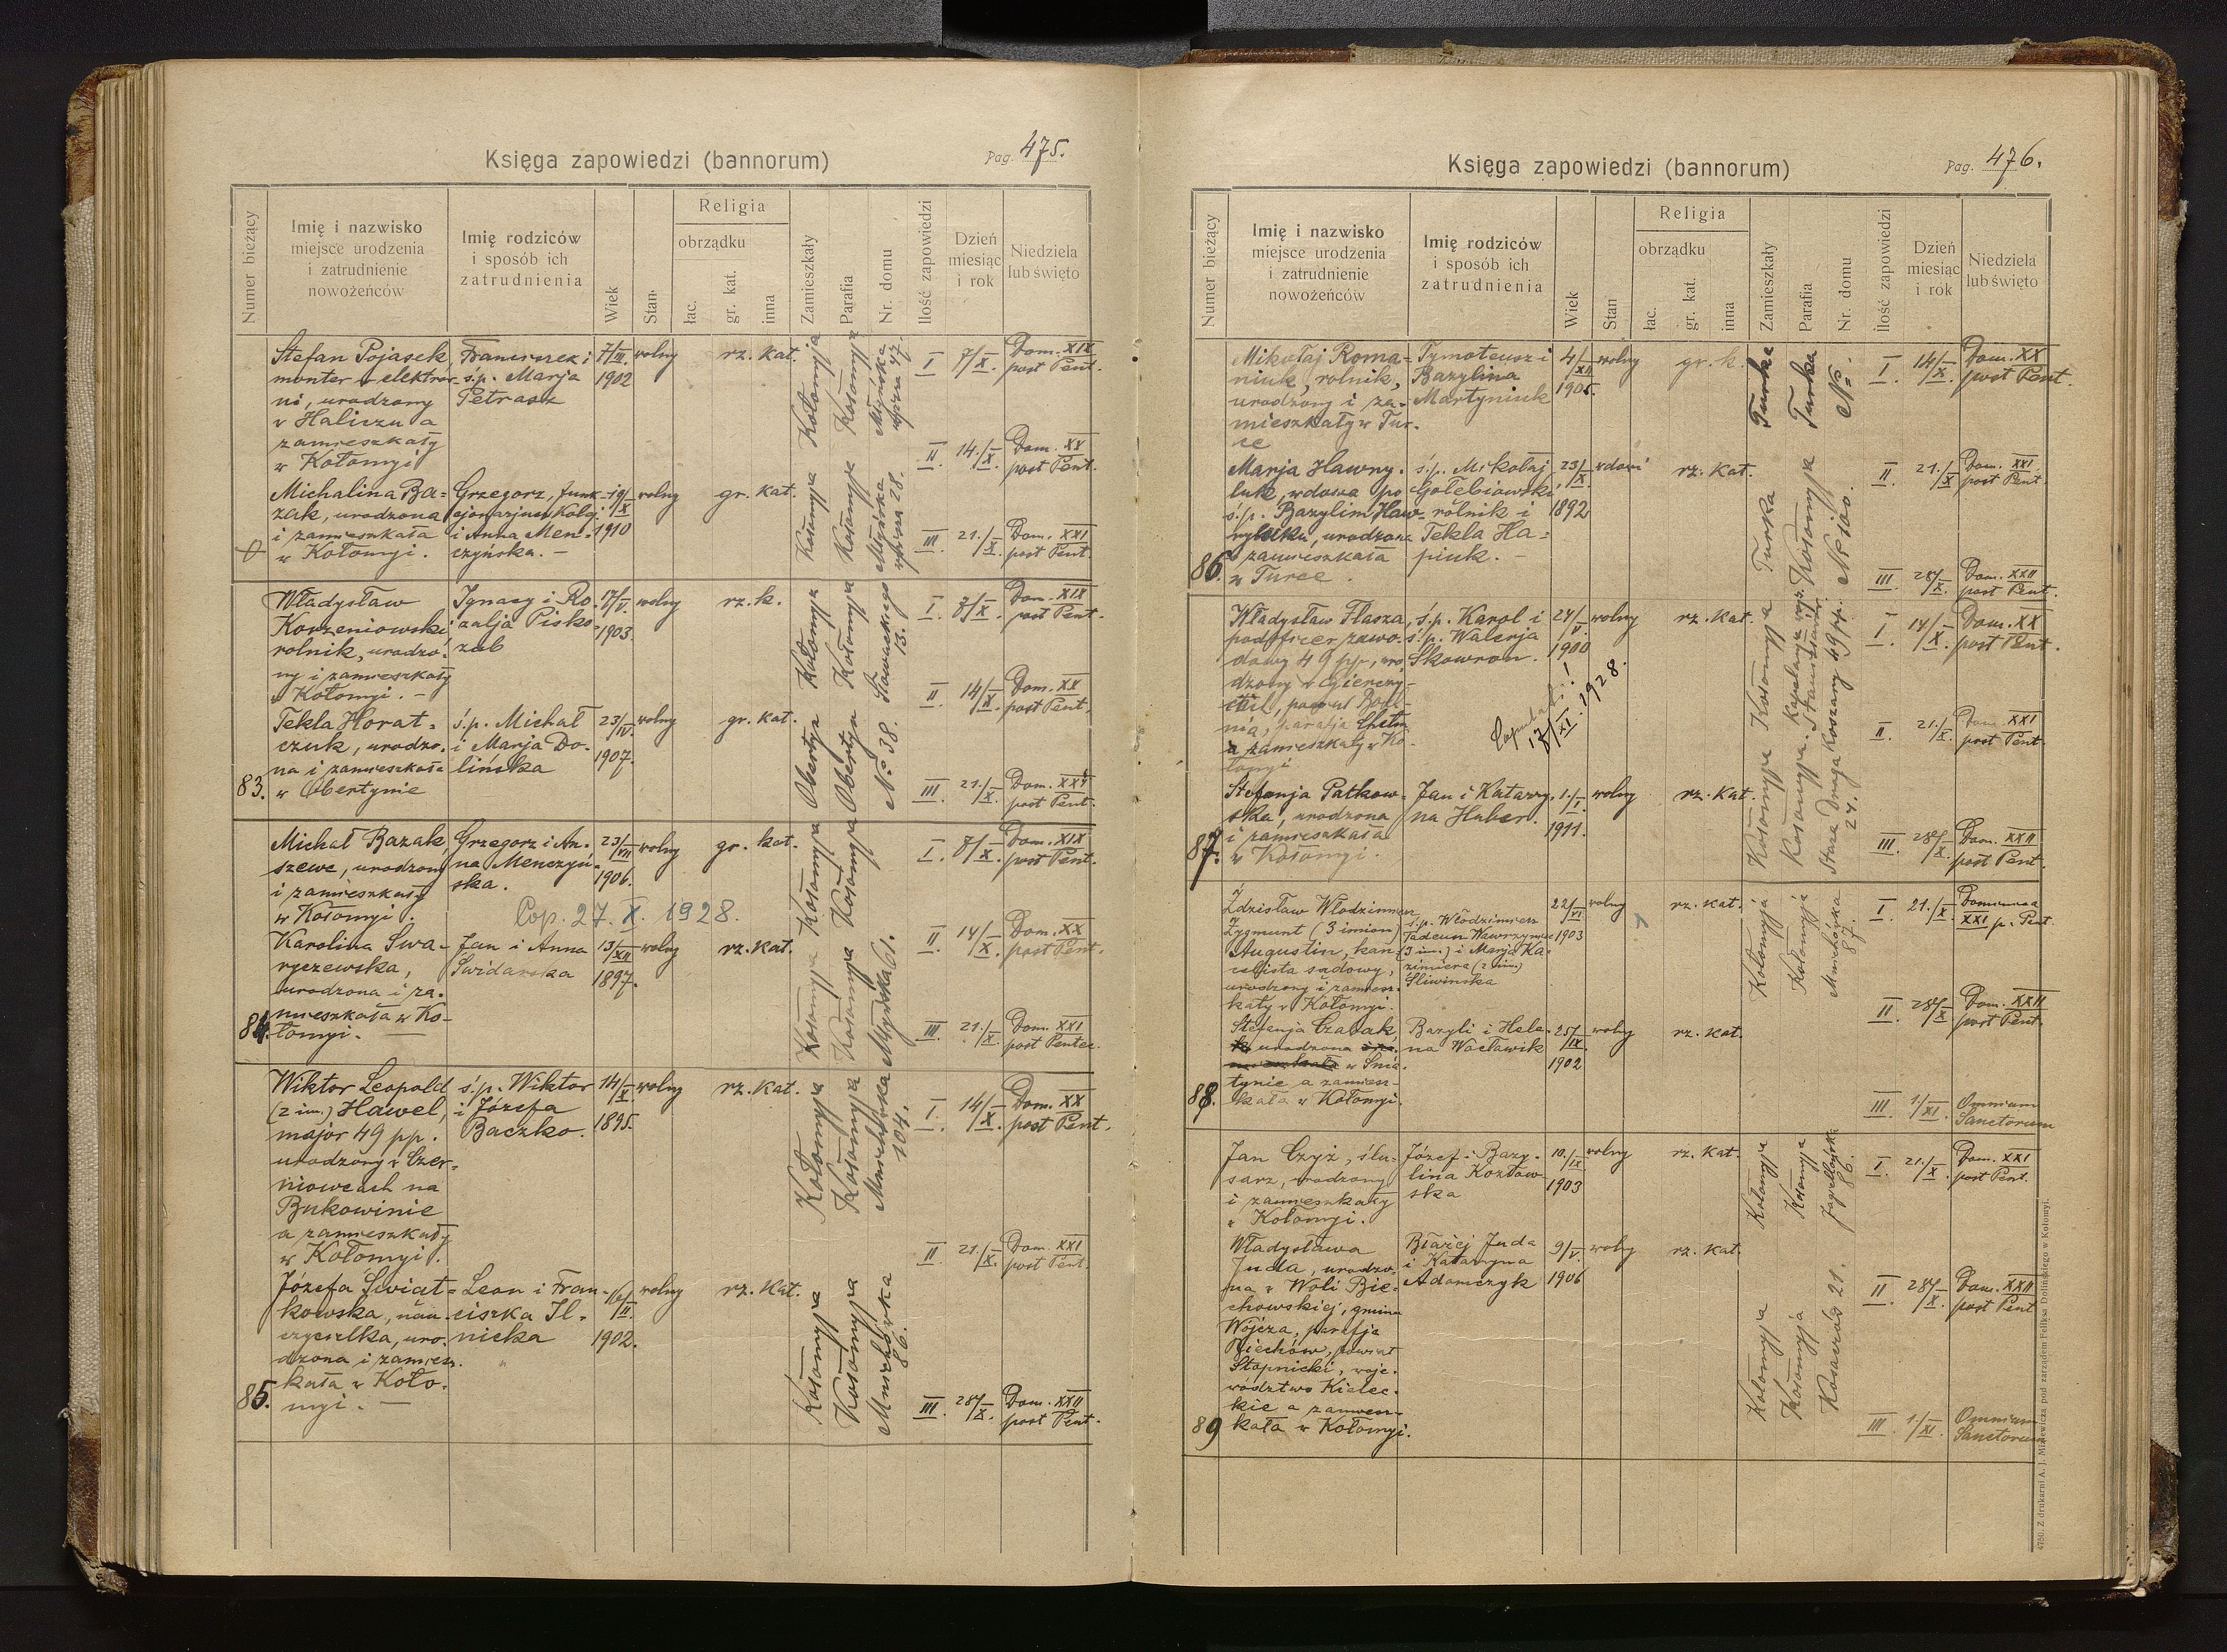 Księga zapowiedzi (bannorum)
Pag. 475.
Numer bieżący
Imię i nazwisko
miejsce urodzenia
i zatrudnienie
nowożeńców
Imię rodziców
i sposób ich
zatrudnienia
Wiek
Stan
Religia
obrządku
łac.
gr. kat.
inna
Zamieszkały
Parafia
Nr. domu
Ilość zapowiedzi
Dzień
miesiąc
i rok
Niedziela
lub święto
Stefan Pojasek
monter w elektrow-
ni, urodzony
w Haliczu a
zamieszkały
w Kołomyi
Franciszek i
ś.p. Marja
Petrasz
7/III.
1902
wolny
rz. kat.
Kołomyja
Kołomyja
Młyńska
47.
I 7/X. Dom. XIX
post Pent.
II 14./X. Dom. XX
post Pent.
Michalina Ba=
zak, urodzona
i zamieszkała
w Kołomyi. —
Grzegorz, funk-
cjonarjusz Kolej.
i Anna Men-
czyńska. —
19/X
1910
wolny
gr. kat.
Kołomyja
Kołomyja
Młyńska
28.
III 21./X. Dom. XXI
post Pent.
83.
Władysław
Korzeniowski
rolnik, urodzo-
ny i zamieszkały
w Kołomyi. —
Ignacy i Ro-
zalja Pisko-
zub
17/V.
1903.
wolny
rz. k.
Kołomyja
Kołomyja
Słowackiego
13.
I 8/X. Dom. XIX
post Pent.
II 14/X. Dom. XX
post Pent.
Tekla Horat-
czuk, urodzo-
na i zamieszkała
w Obertynie
ś.p. Michał
i Marja Do-
lińska
23/IV.
1907.
wolny
gr. kat.
Obertyn
Obertyn
No 38.
III 21./X. Dom. XXI
post Pent.
84.
Michał Bazak,
szewc, urodzony
i zamieszkały
w Kołomyi.
Grzegorz i An-
na Menczyń-
ska.
23/VII
1906.
wolny
gr. kat.
Kołomyja
Kołomyja
I. 8/X. Dom. XIX
post Pent.
Cop. 27. X. 1928.
Karolina Swa-
ryczewska,
urodzona i za-
mieszkała w Ko-
łomyi. —
Jan i Anna
Świdarska
13/XII
1897.
wolny
rz. kat.
Kołomyja
Kołomyja
Młyńska 61.
II 14/X. Dom. XX
post Pent.
III 21./X. Dom. XXI
post Pentec.
85.
Wiktor Leopold
(2 im.) Hawel,
major 49 pp.
urodzony w Czer-
niowcach na
Bukowinie
a zamieszkały
w Kołomyi.
ś.p. Wiktor
i Józefa
Baczko.
14/X.
1895.
wolny
rz. kat.
Kołomyja
Kołomyja
Mnichówka
104.
I 14/X. Dom. XX
post Pent.
II 21./X. Dom. XXI
post Pent.
Józefa Świat=
kowska, nau-
czycielka, uro-
dzona i zamiesz-
kała w Koło-
myi. —
Leon i Fran-
ciszka Il-
nicka
16/II.
1902.
wolny
rz. kat.
Kołomyja
Kołomyja
Mnichówka
86.
III 28/X. Dom. XXII
post Pent.
Księga zapowiedzi (bannorum)
Pag. 476.
Numer bieżący
Imię i nazwisko
miejsce urodzenia
i zatrudnienie
nowożeńców
Imię rodziców
i sposób ich
zatrudnienia
Wiek
Stan
Religia
obrządku
łac.
gr. kat.
inna
Zamieszkały
Parafia
Nr. domu
Ilość zapowiedzi
Dzień
miesiąc
i rok
Niedziela
lub święto
86.
Mikołaj Roma=
niuk, rolnik,
urodzony i za-
mieszkały w Tur-
ce
Tymoteusz i
Bazylina
Martyniuk
4/XII
1905.
wolny
gr. k.
Turka
Turka
No.
I 14/X. Dom. XX
post Pent.
Marja Hawry-
luk, wdowa po
ś.p. Bazylim Haw-
ryluku, urodzona
i zamieszkała
w Turce.
ś.p. Mikołaj
Gołębiowski,
rolnik i
Tekla Ha=
piuk. —
23/X
1892
rz. kat.
Turka
Kołomyja
No 100.
II 21./X Dom. XXI
post Pent.
III 28/X. Dom. XXII
post Pent.
87.
Władysław Flasza,
podoficer zawo-
dowy 49 pp., uro-
dzony w
powiat Boch-
nia, parafja
a zamieszkały w Ko-
łomyi
ś.p. Karol i
ś.p. Walerja
Skowron.
24/V.
1900
wolny
rz. kat.
Kołomyja
Stanisławów
Koszary 49 pp.
I 14/X. Dom. XX
post Pent.
Copulati!
13/XI. 1928.
II 21./X. Dom. XXI
post Pent.
Stefanja Patkow-
ska, urodzona
i zamieszkała
w Kołomyi.
Jan i Katarzy-
na Huber.
1./I.
1911.
wolny
rz. kat.
Kołomyja
Kołomyja
Stara Druga
24.
III 28/X. Dom. XXII
post Pent.
88.
Zdzisław Włodzimierz
Zygmunt (3 imion)
Augustin, kan-
celista sądowy,
urodzony i zamiesz-
kały w Kołomyi.
ś.p. Włodzimierz
Tadeusz Wawrzyniec
(3 im.) i Marja Ka-
zimiera (2 im.)
Śliwińska
22/VI
1903
wolny
rz. kat.
Kołomyja
Kołomyja
Mnichówka
87.
I 21./X. Dominica
XXI p. Pent.
II 28/X Dom. XXII
post Pent.
Stefanja Czabak,
urodzona
w Śnia-
tynie a zamiesz-
kała w Kołomyi.
Bazyli i Hele-
na Wacławik
25/IX.
1902
wolny
rz. kat.
III 1/XI. Omnium
Sanctorum
89
Jan Czyż, ślu-
sarz, urodzony
i zamieszkały
w Kołomyi.
Józef i Bazy-
lina Kozłow-
ska
10./IX
1903
wolny
rz. kat.
Kołomyja
Kołomyja
Jagiellońska
86.
I 21./X. Dom. XXI
post Pent.
Władysława
Juda, urodzo-
na w Woli Bie-
chowskiej, gmina
Wójcza, parafja
Biechów, powiat
Stopnicki, woje-
wództwo Kielec-
kie a zamiesz-
kała w Kołomyi.
Błażej Juda
i Katarzyna
Adamczyk
9/V.
1906
wolny
rz. kat.
Kołomyja
Kołomyja
21.
II 28/X. Dom. XXII
post Pent
III 1./XI. Omnium
Sanctorum
4750. Z drukarni A. J. Miziewicza pod zarządem Feliksa Dolińskiego w Kołomyi.